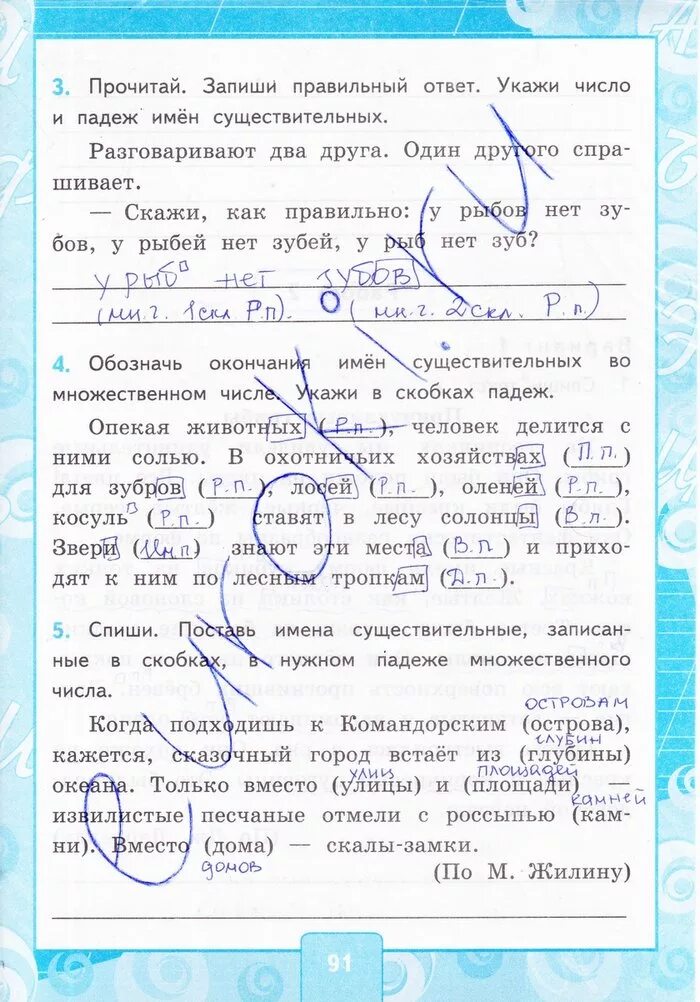 3. Прочитай. Запиши правильный ответ. Укажи число
и падеж имён существительных.
Разговаривают два друга. Один другого спра-
шивает.
— Скажи, как правильно: у рыбов нет зу-
бов, у рыбей нет зубей, у рыб нет зуб?
у рыб нет зубов
(мн.г. 1скл Р.п). (мн.г. 2скл. Р.п)
4. Обозначь окончания имён существительных во
множественном числе. Укажи в скобках падеж.
Опекая животных (Р.п.), человек делится с
ними солью. В охотничьих хозяйствах (П.п.)
для зубров (Р.п.), лосей (Р.п.), оленей (Р.п.),
косуль (Р.п.) ставят в лесу солонцы (В.п.).
Звери (Имп) знают эти места (В.п) и прихо-
дят к ним по лесным тропкам (Д.п.).
5. Спиши. Поставь имена существительные, записан-
ные в скобках, в нужном падеже множественного
числа.
островам
Когда подходишь к Командорским (острова),
глубин
кажется, сказочный город встаёт из (глубины)
улиц площадей
океана. Только вместо (улицы) и (площади) —
камней
извилистые песчаные отмели с россыпью (кам-
ни). Вместо (дома) — скалы-замки.
домов
(По М. Жилину)
91